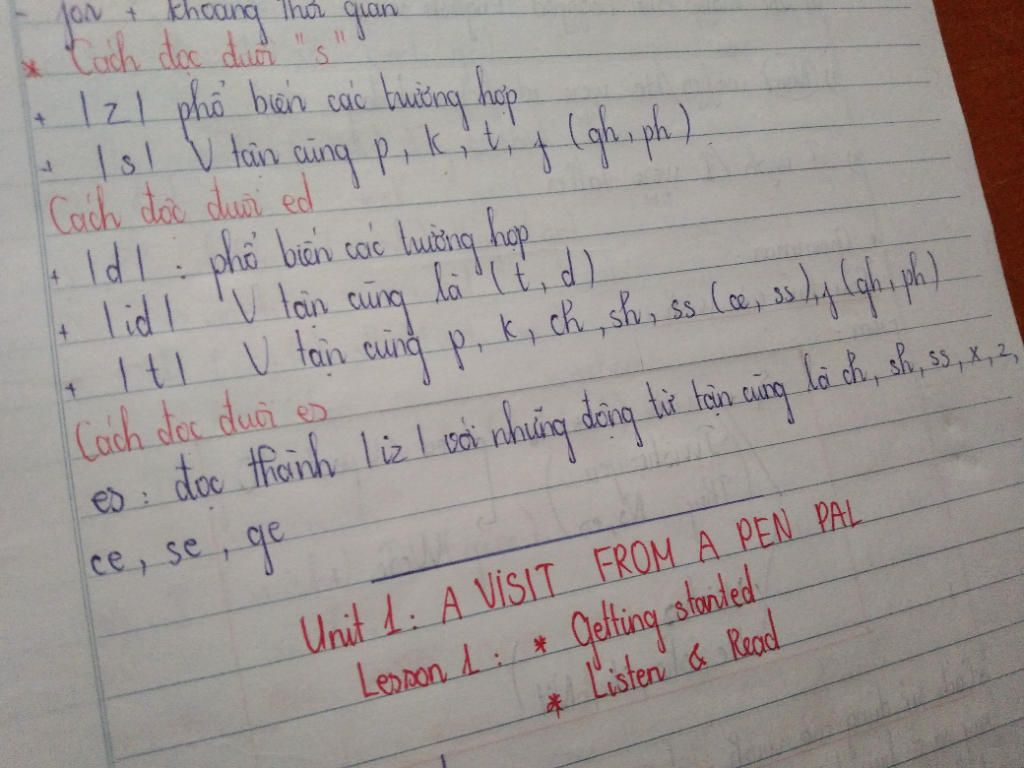 - for + khoảng thời gian
* Cách đọc đuôi "s"
+ |z| phổ biến các trường hợp
+ |s| V tận cùng p, k, t, f (gh, ph)
Cách đọc đuôi ed
+ |d| : phổ biến các trường hợp
+ |id| V tận cùng là (t, d)
+ |t| V tận cùng p, k, ch, sh, ss (ce, ss), f (gh, ph)
Cách đọc đuôi es
es : đọc thành |iz| với những động từ tận cùng là ch, sh, ss, x, z,
ce, se, ge
Unit 1: A VISIT FROM A PEN PAL
Lesson 1 : * Getting started
* Listen & Read